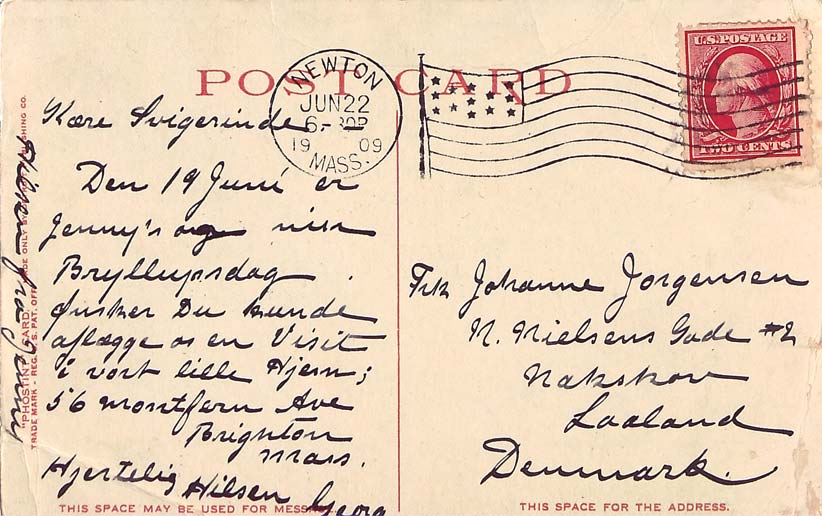 POST CARD
NEWTON
JUN 22
6-30P
19 09
MASS.
U.S. POSTAGE
TWO CENTS
Kære Svigerinde
Den 19 Juni er
Jenny's og min
Bryllupsdag.
Ønsker Du kunde
aflægge os en Visit
i vort lille Hjem;
56 Montfern Ave
Brighton
Mass.
Hjertelig Hilsen Georg
Hilsen fra Jenny
Frk Johanne Jorgensen
N. Nielsens Gade #2
Nakskov
Laaland
Denmark.
"PHOSTINT" CARD
TRADE MARK - REG. U.S. PAT. OFF.
THIS SPACE MAY BE USED FOR MESSAGE.
THIS SPACE FOR THE ADDRESS.